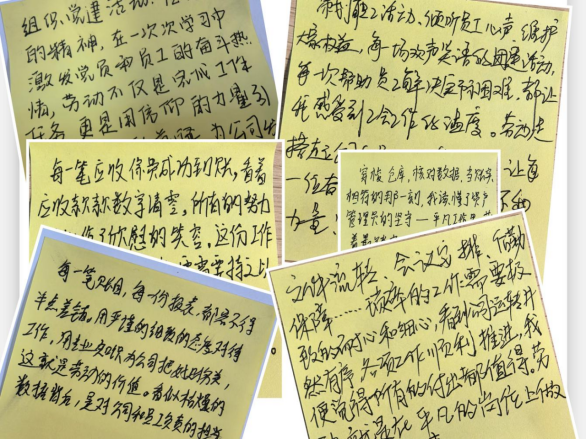 组织党建活动
的精神，在一次次学习中
激发党员和员工的奋斗热
情，劳动不仅是完成工作
任务，更是用信仰的力量引
活动、倾听员工心声、维护
大家权益，每一场欢声笑语的团建活动，
每一次帮助员工解决困难，都让
我感受到工会工作的温度。劳动是
让每
一位
力量！
每一笔应收保费成功到账，看着
应收款款数字清空，所有的努力
了欣慰的笑容。这份工作
需要持之以
穿梭仓库，核对数据，当账实
相符的那一刻，我读懂了资产
管理员的坚守——平凡工作
每一笔贝组，每一份报表，都容不得
半点差错。用严谨的细致的态度对待
工作，用专业知识为公司把好财务关，
这就是劳动的价值。看似枯燥的
数据背后，是对公司和员工负责的担当
文件流转、会议安排、后勤
保障……琐碎的工作需要极
致的耐心和细心，看到公司运转井
然有序，各项工作顺利推进，我
便觉得所有的付出都值得。劳
动就是在平凡的岗位上做